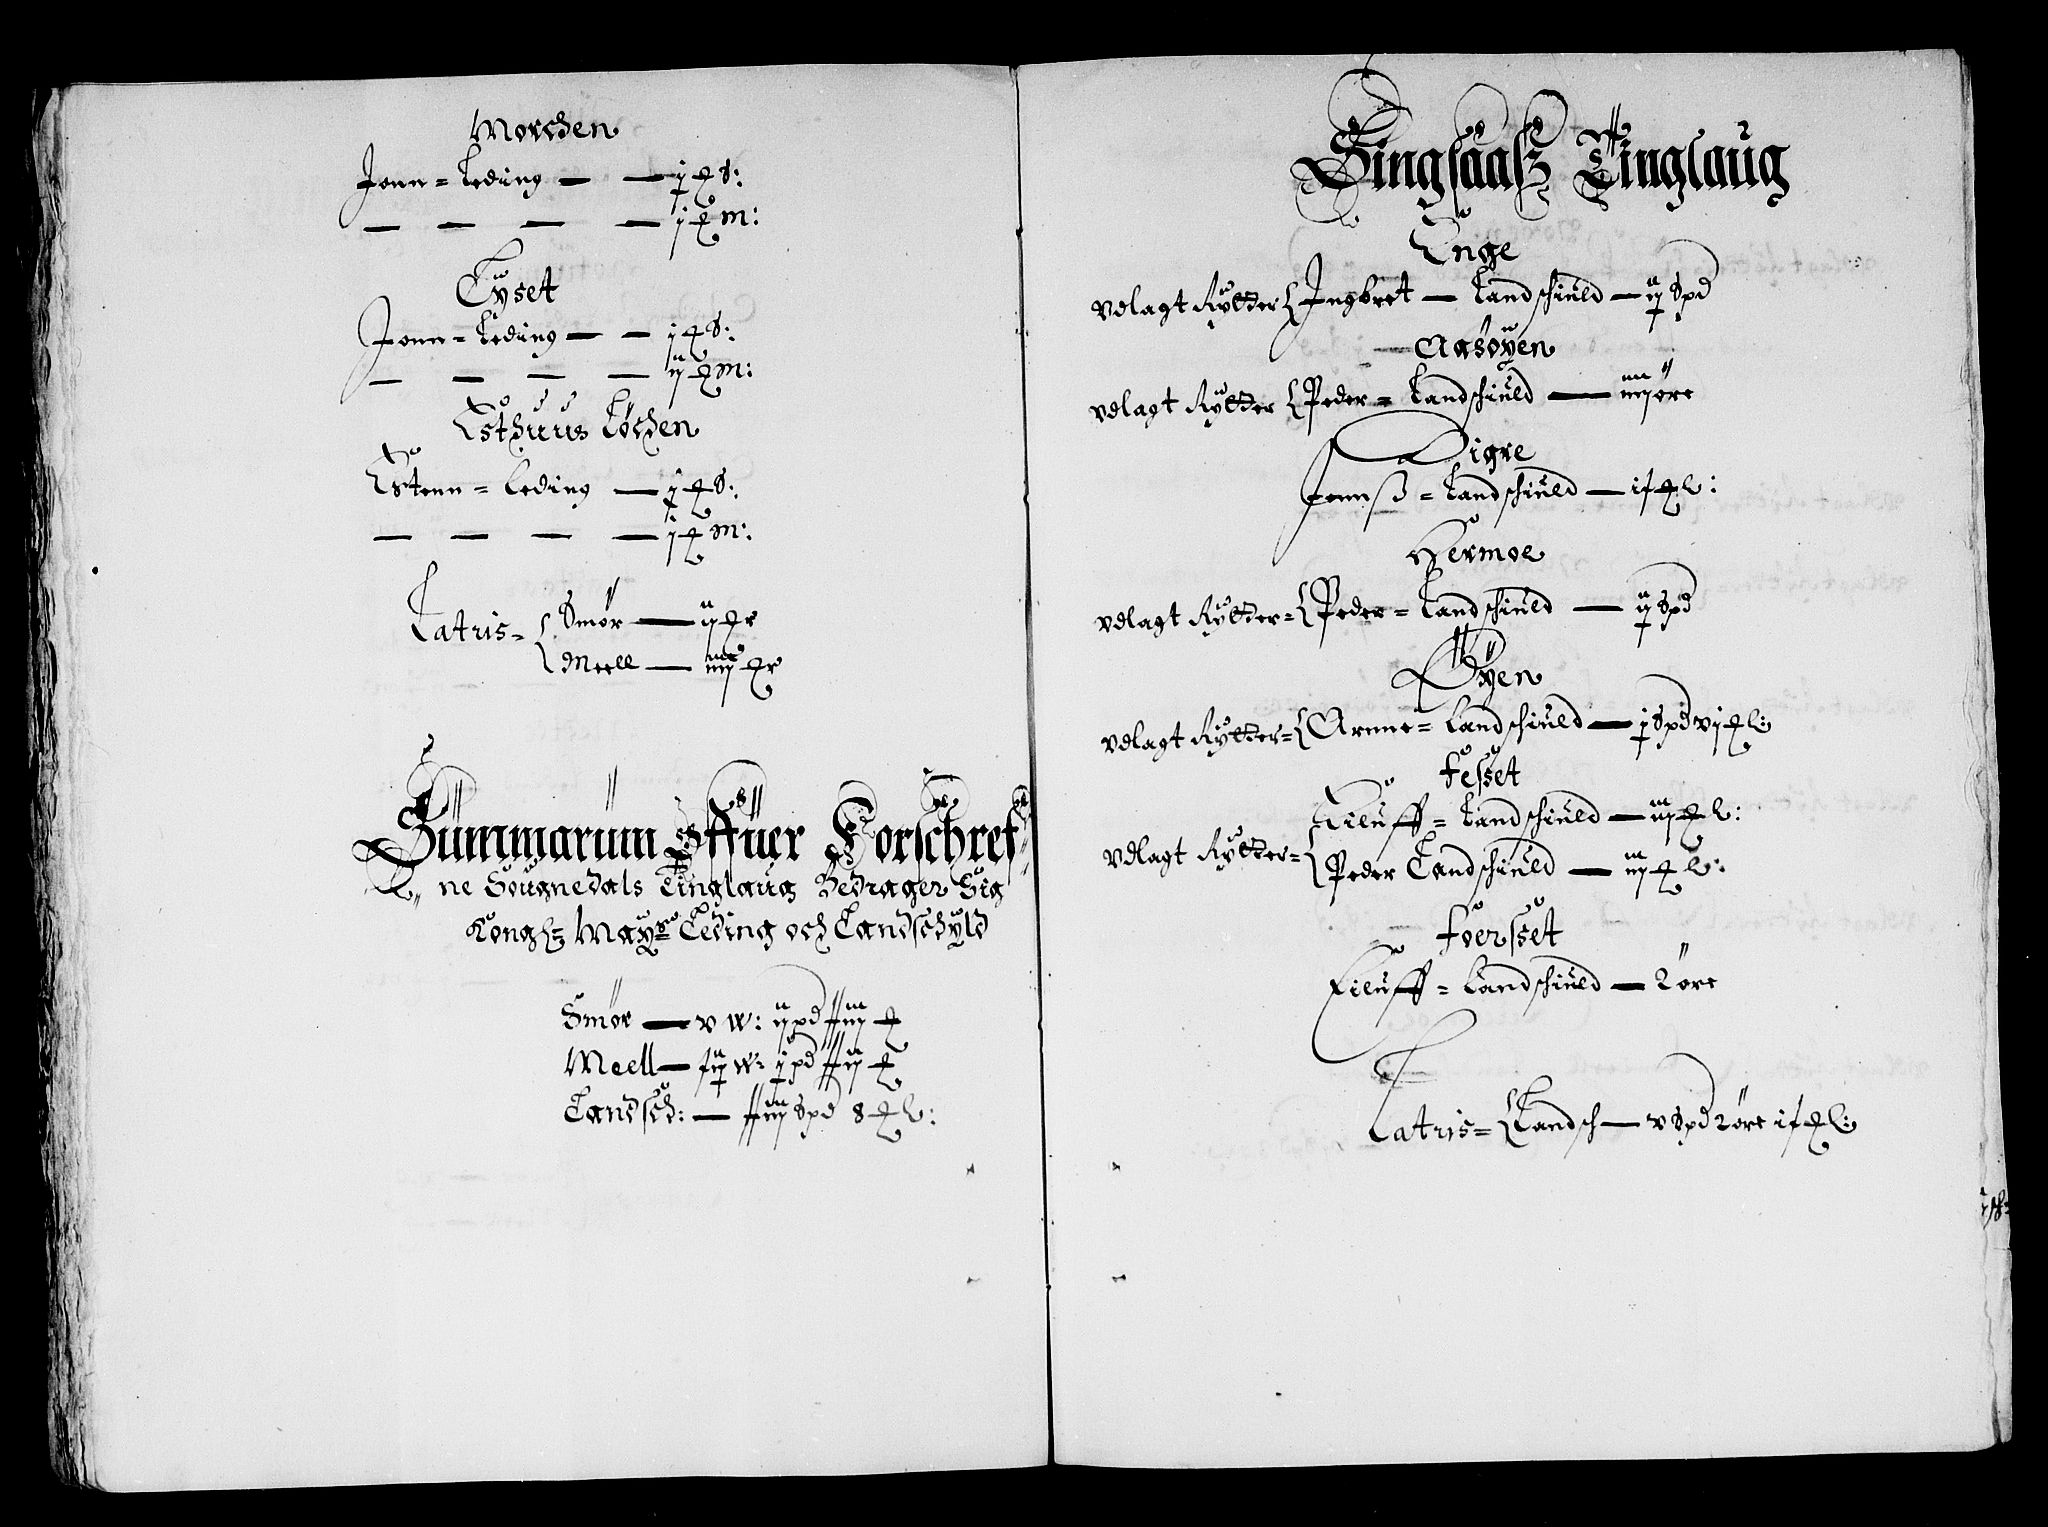 Morchen
Jonn = Leding — — j ℔ S:
— — — — j ℔ M:
Tyset
Jonn = Leding — — j ℔ S:
— — — — ij ℔ M:
Esthuus Løchen
Estenn = Leding — j ℔ S:
— — — — j ℔ M:
Latris = { Smør — ij ℔r
{ Meell — iiij ℔r
Summarum Offuer Forschref
ne Sougnedals Tinglaug Bedrager Sig
Kongl: Mayts Leding och Landschyld
Smør — v W: ij pd iij ℔
Meell — ij W: j pd ij ℔
Landsch: — iiij Spd 8 ℔ l:
Singsaass Tinglaug
Enge
vdlagt Rytter { Ingbret — Landschiuld — ij Spd
Aasøyen
vdlagt Rytter { Peder = Landschiuld — iij ørt
Digre
Jonnß = Landschiuld — if ℔ l:
Hermoe
vdlagt Rytter = { Peder = Landschiuld — ij Spd
Øyen
vdlagt Rytter = { Arnne = Landschiuld — j Spd vj ℔ l:
Fesset
Eiluff = Landschiuld — iij ℔ l:
vdlagt Rytter = { Peder Landschiuld — iij ℔ l:
Foersset
Eiluff = Landschiuld — 2 ørt
Latris = { Landsch — v Spd 2 ørt if ℔ l: